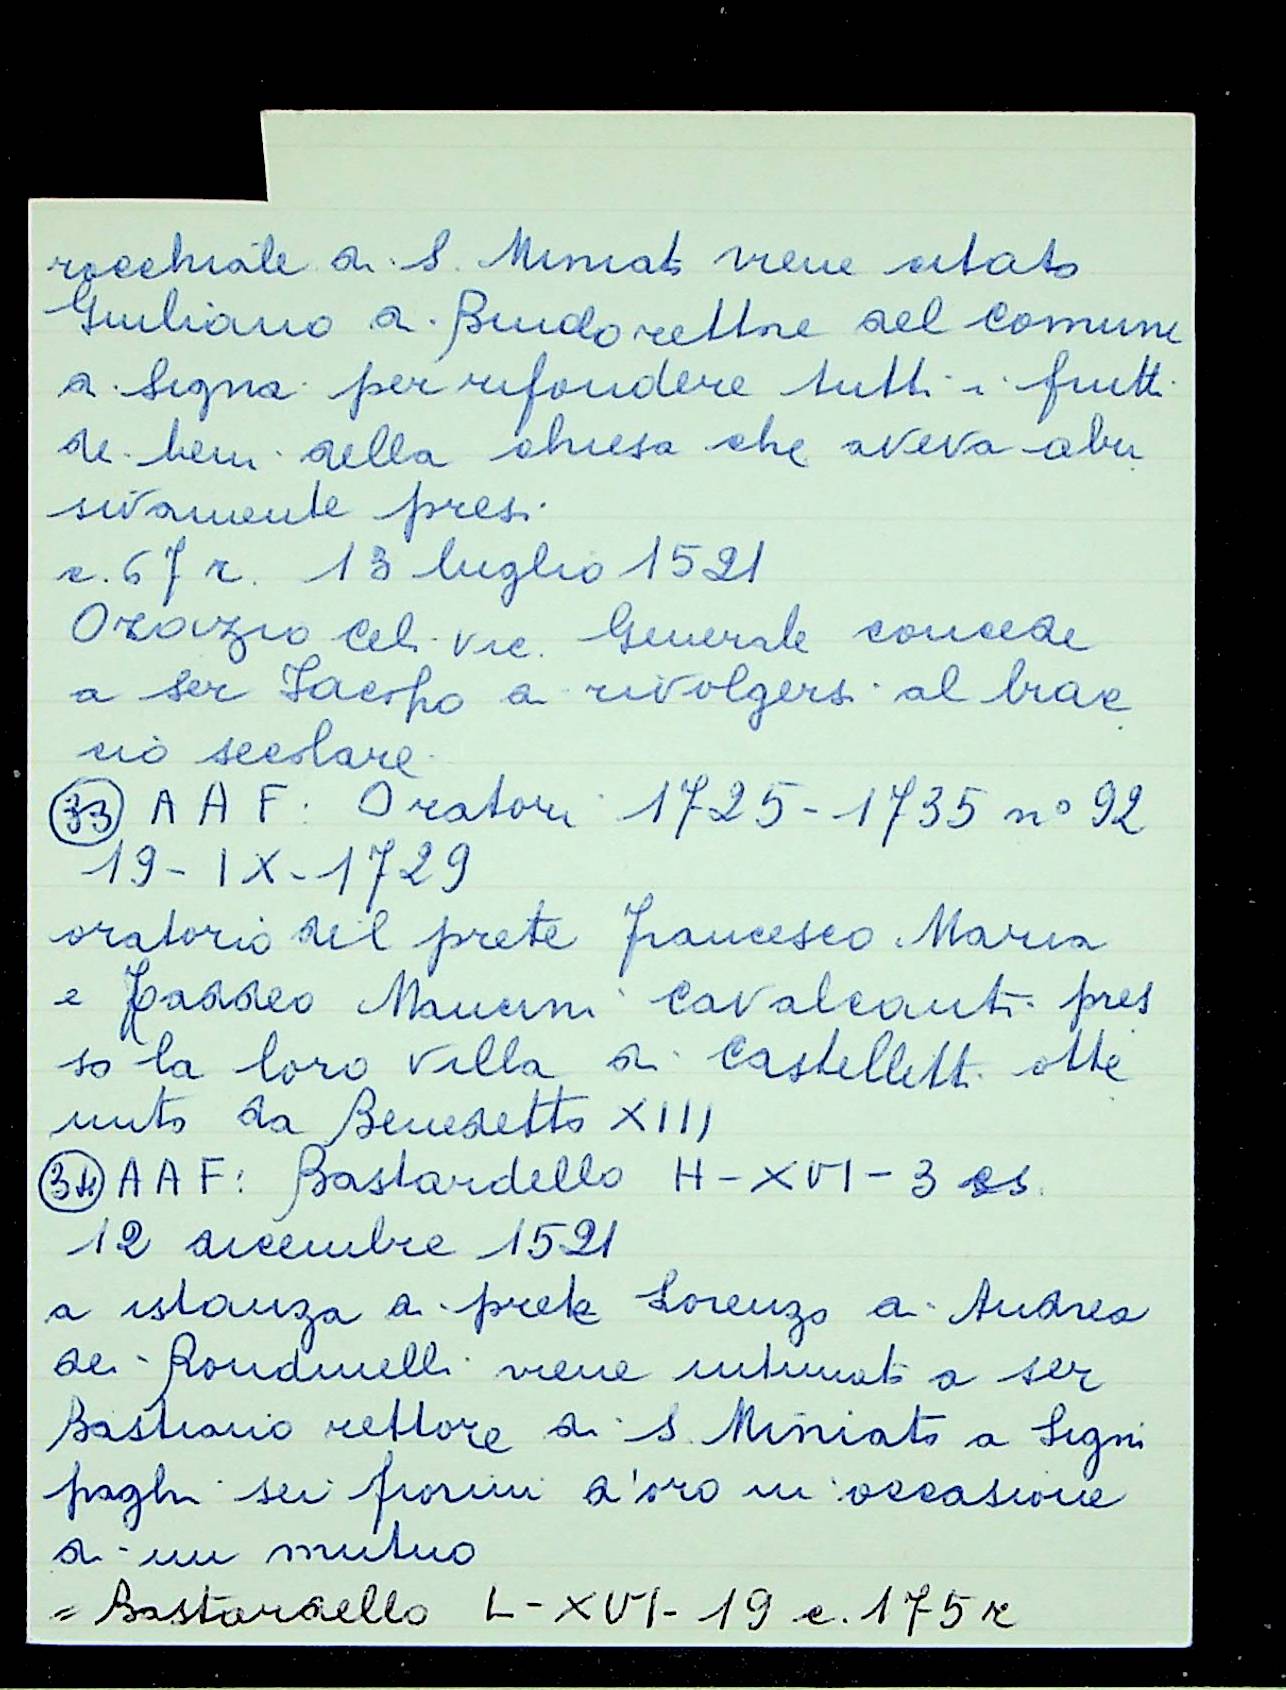 rocchiale di S. Miniato viene citato
Giuliano di Bindo rettore del comune
di Signa per rifondere tutti i frutti
de beni della chiesa che aveva abu
sivamente presi
c. 67 r. 13 luglio 1521
Orazio Cel. vic. Generale concede
a ser Jacopo di rivolgersi al brac
cio secolare
33 A A F: Oratori 1725-1735 n° 92
19-IX-1729
oratorio del prete Francesco Maria
e Taddeo Mancini Cavalcanti pres
so la loro villa di Castelletti otte
nuto da Benedetto XIII
34 A A F: Bastardello H-XVI-3 cs.
12 dicembre 1521
a istanza di prete Lorenzo di Andrea
dei Rondinelli viene intimato a ser
Bastiano rettore di S. Miniato a Signi
paghi sei fiorini d'oro in occasione
di un mutuo
= Bastardello L-XVI-19 c. 175 r